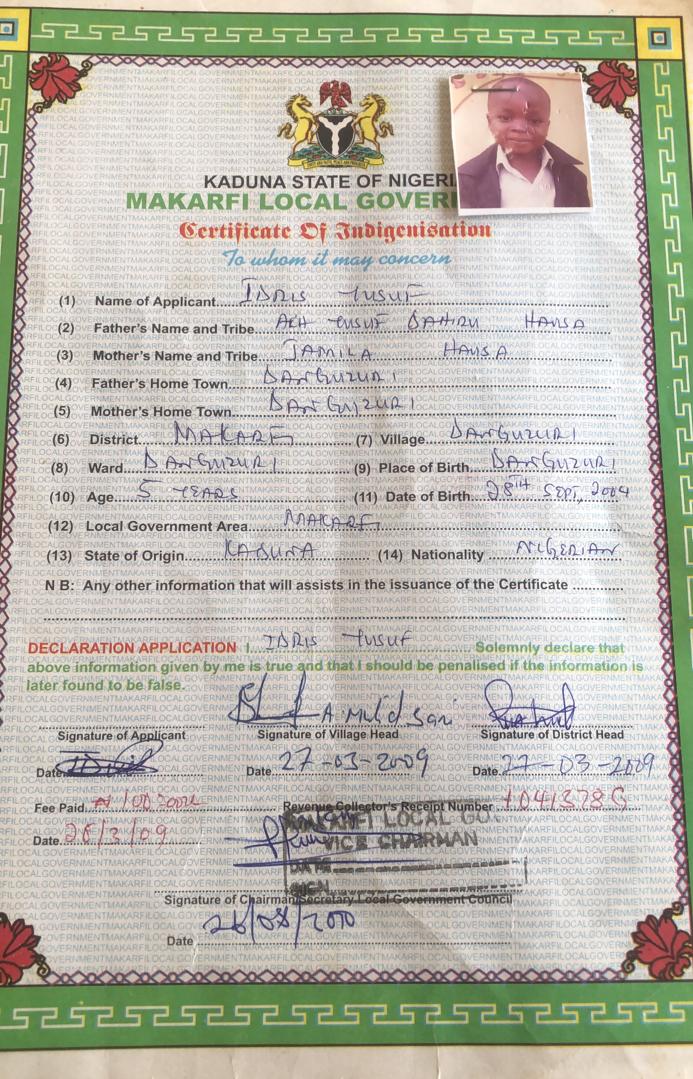 KADUNA STATE OF NIGERI
MAKARFI LOCAL GOVER
Certificate Of Indigenisation
To whom it may concern
(1) Name of Applicant IDRIS YUSUF
(2) Father's Name and Tribe ALH YUSUF DAHIRU HAUSA
(3) Mother's Name and Tribe JAMILA HAUSA
(4) Father's Home Town DANGUZURI
(5) Mother's Home Town DANGUZURI
(6) District MAKARFI (7) Village DANGUZURI
(8) Ward DANGUZURI (9) Place of Birth DANGUZURI
(10) Age 5 YEARS (11) Date of Birth 28TH SEPT, 2004
(12) Local Government Area MAKARFI
(13) State of Origin KADUNA (14) Nationality NIGERIAN
N B: Any other information that will assists in the issuance of the Certificate
DECLARATION APPLICATION I IDRIS YUSUF Solemnly declare that
above information given by me is true and that I should be penalised if the information is
later found to be false.
Signature of Applicant Signature of Village Head Signature of District Head
Date Date 27-03-2009 Date 27-03-2009
Fee Paid Revenue Collector's Receipt Number
Date 26/3/09
MAKARFI LOCAL GO
VICE CHAIRMAN
DATE
SIGN
Signature of Chairman/Secretary Local Government Council
Date